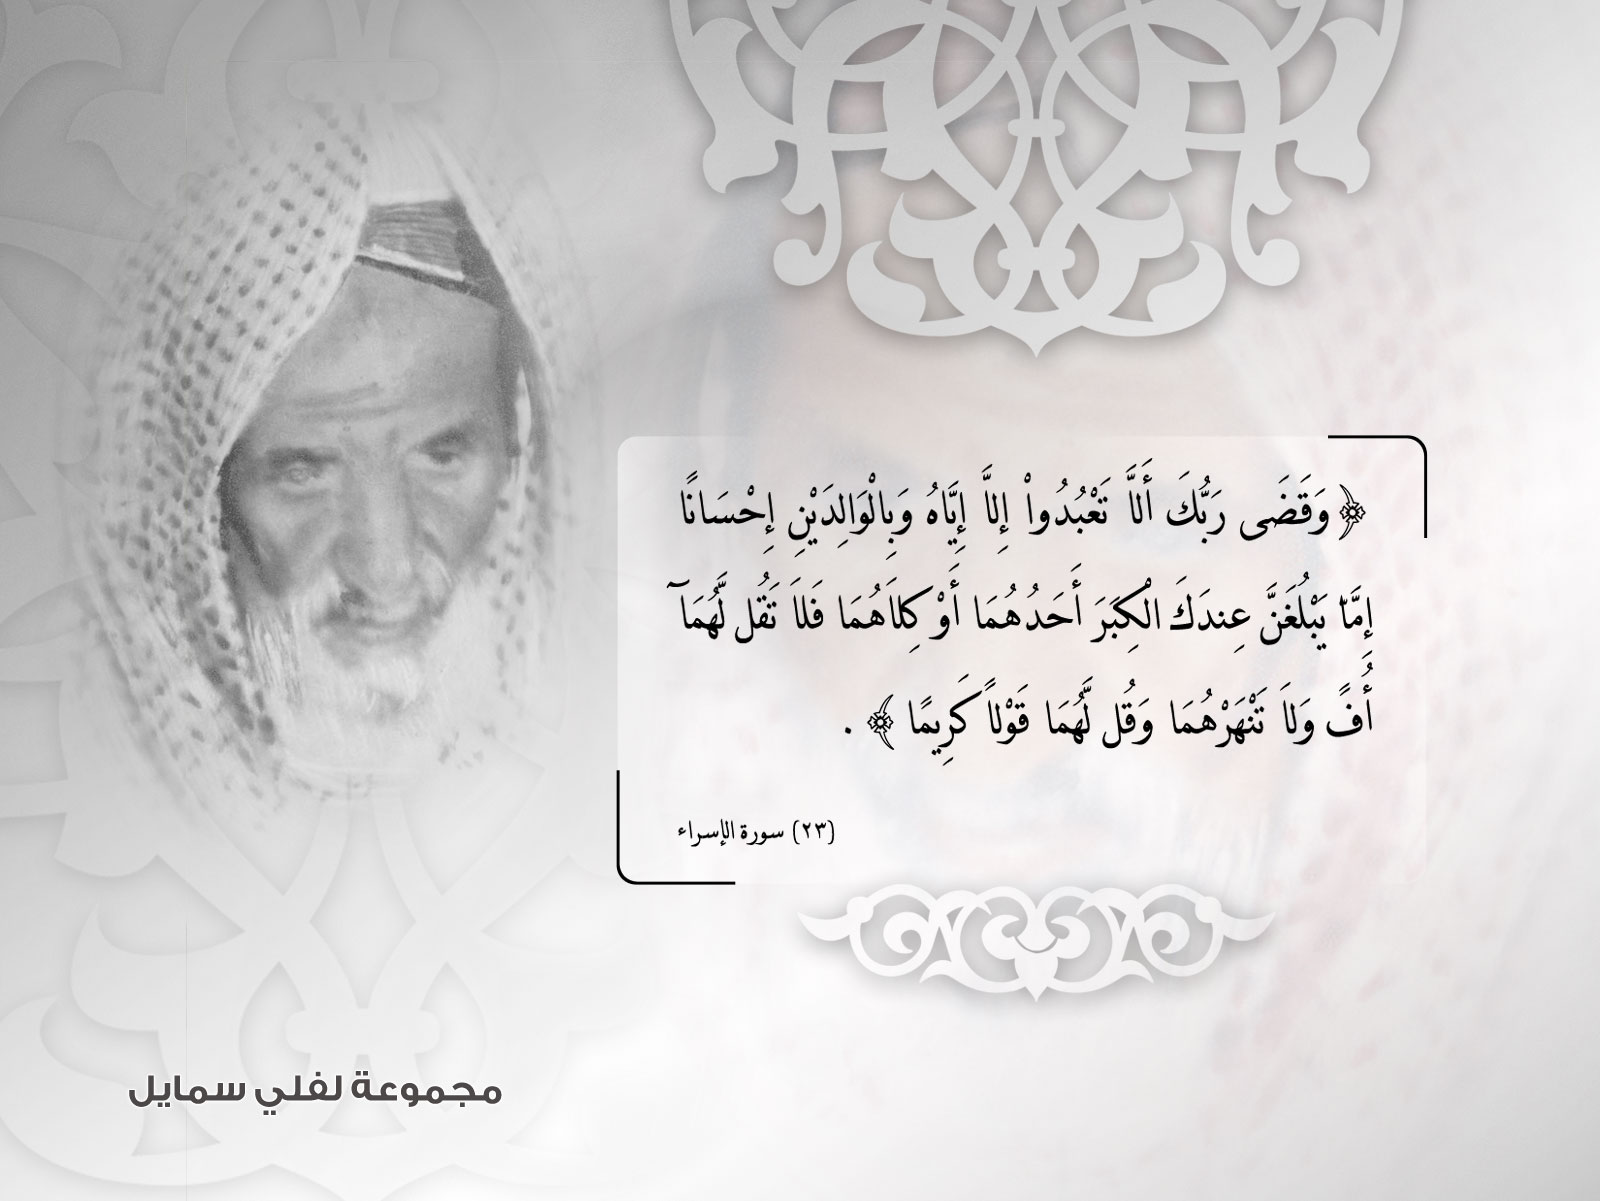 ﴿ وَقَضَى رَبُّكَ أَلاَّ تَعْبُدُواْ إِلاَّ إِيَّاهُ وَبِالْوَالِدَيْنِ إِحْسَانًا
إِمَّا يَبْلُغَنَّ عِندَكَ الْكِبَرَ أَحَدُهُمَا أَوْ كِلاَهُمَا فَلاَ تَقُل لَّهُمَآ
أُفٍّ وَلاَ تَنْهَرْهُمَا وَقُل لَّهُمَا قَوْلاً كَرِيمًا ﴾ .
(٢٣) سورة الإسراء
مجموعة لفلي سمايل